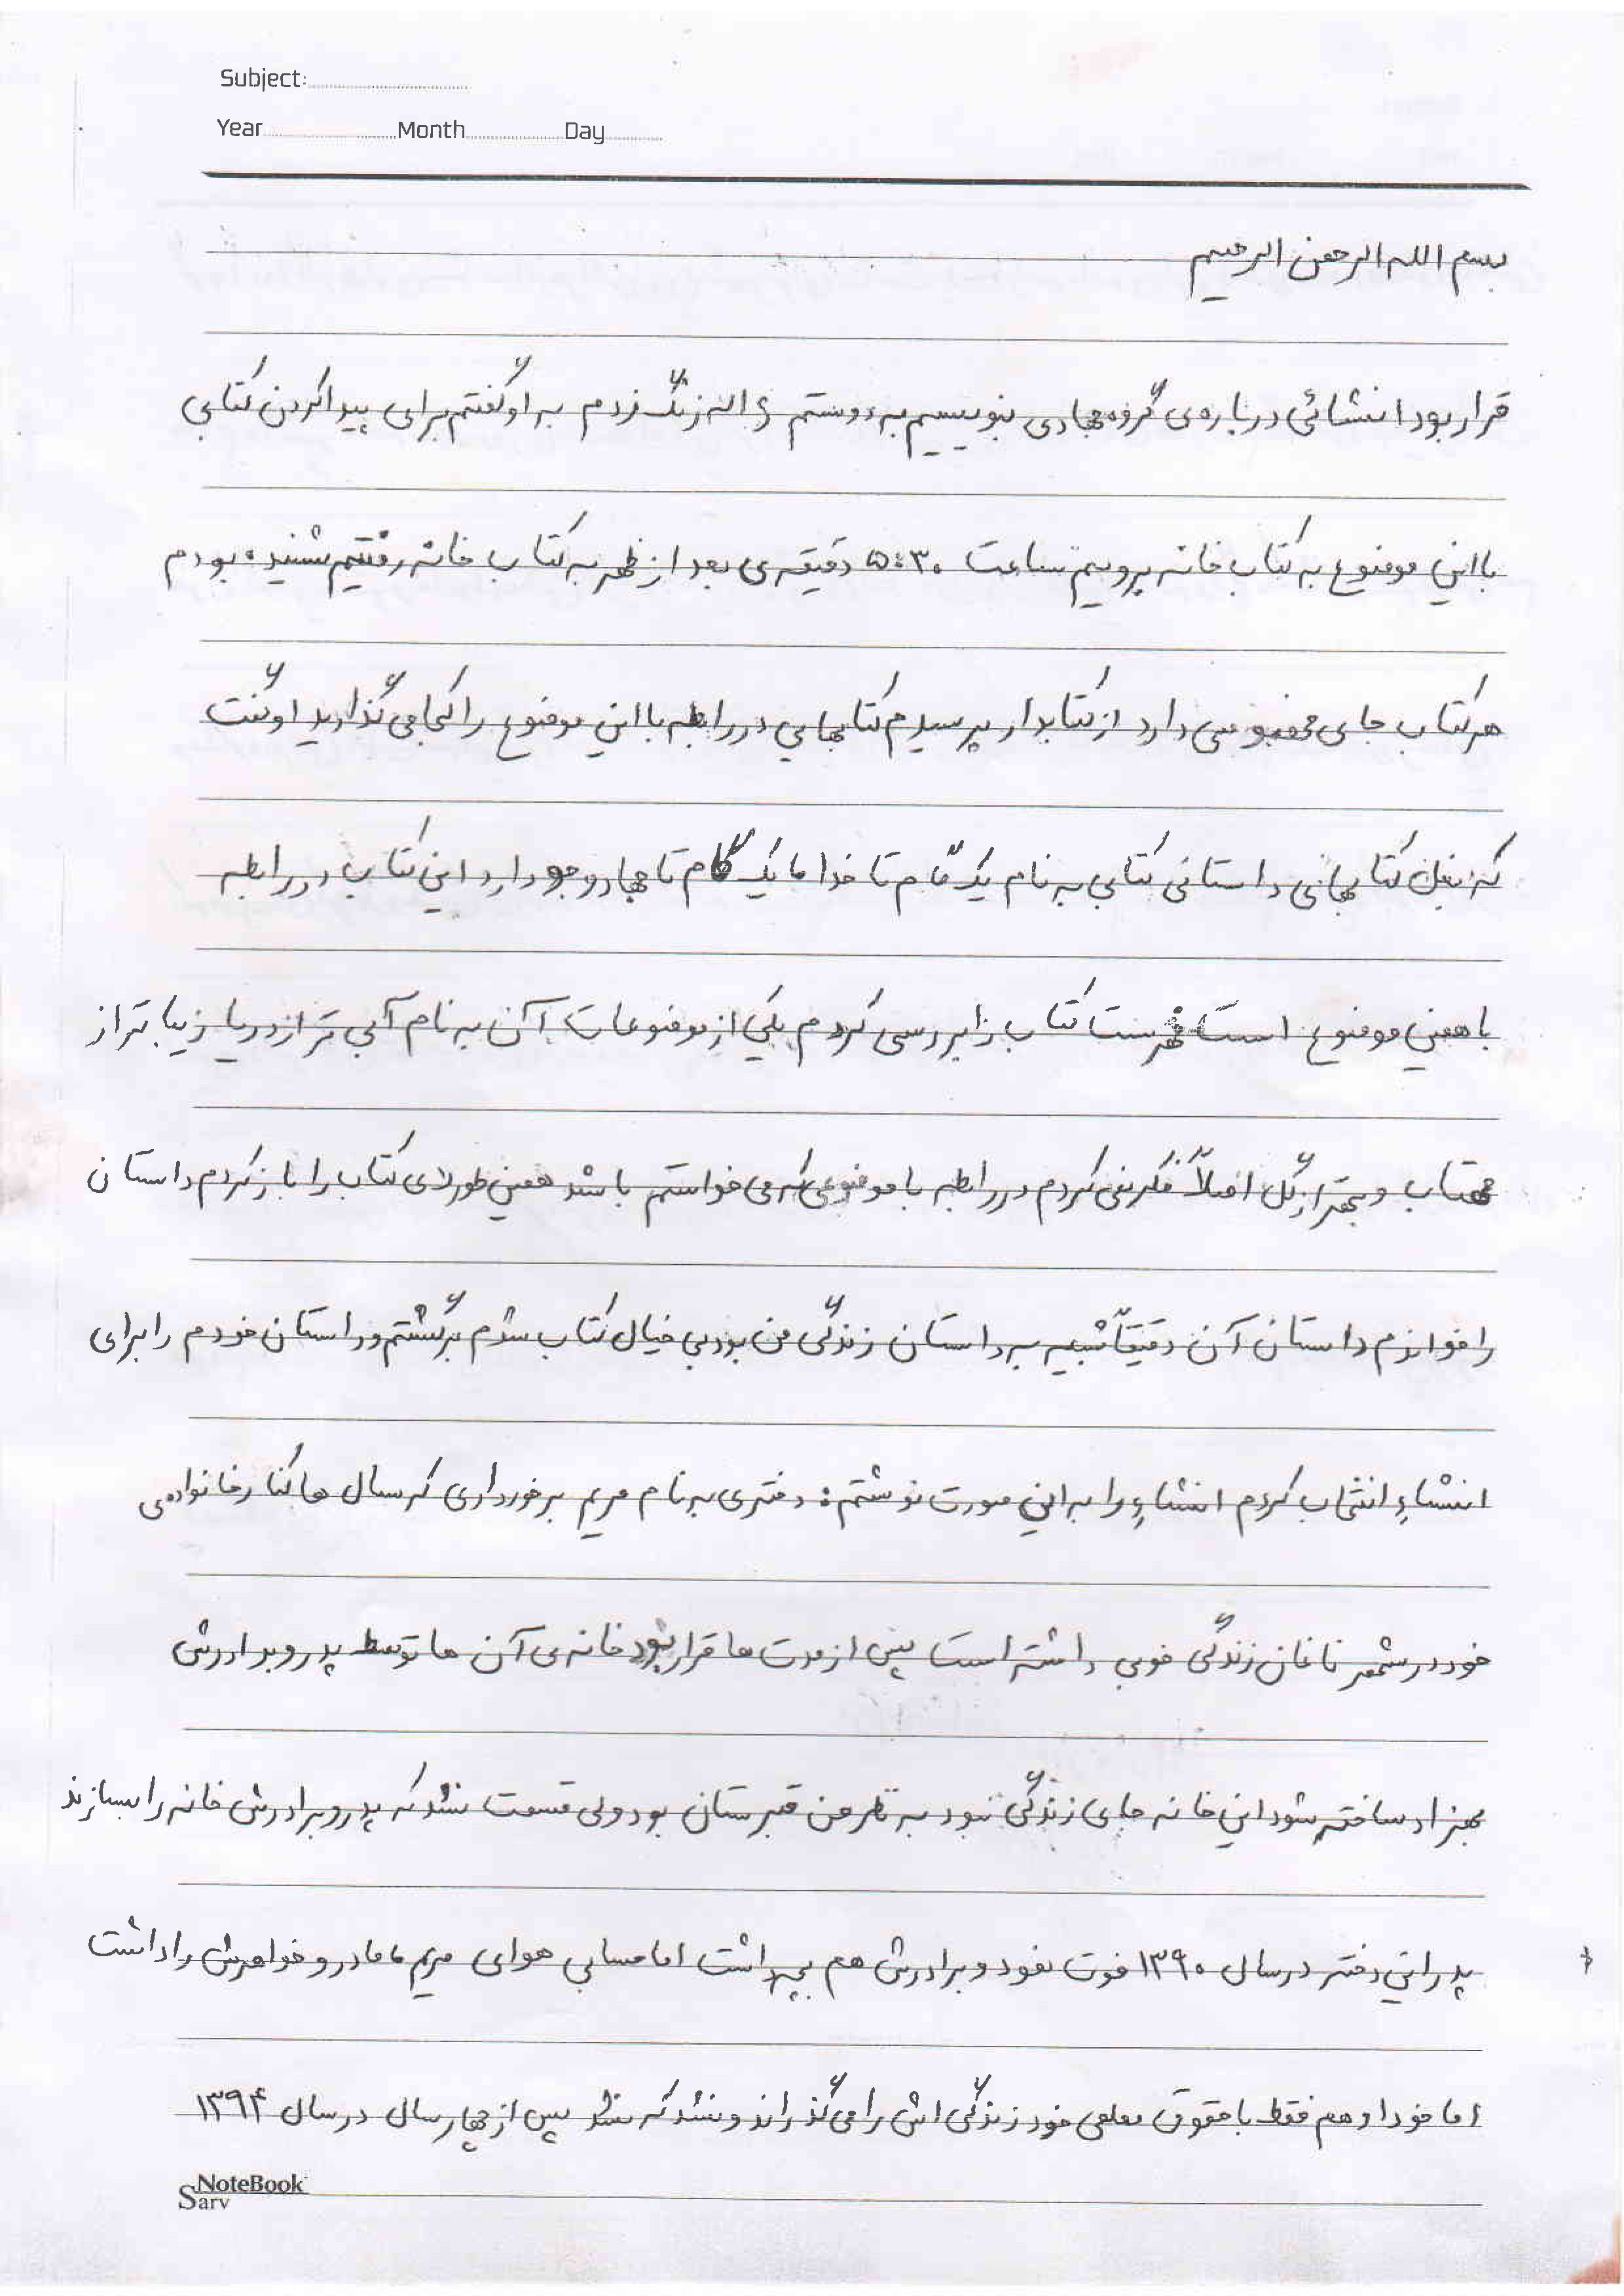 Subject:
Year Month Day
بسم الله الرحمن الرحیم
قرار بود انشائی درباره‌ی گروه جهادی بنویسیم به دوستم ژاله زنگ زدم به او گفتم برای پیدا کردن کتابی
با این موضوع به کتاب خانه برویم ساعت ۵:۳۰ دقیقه‌ی بعد از ظهر به کتاب خانه رفتیم شنیده بودم
هر کتاب جای مخصوصی دارد از کتابدار پرسیدم کتابهایی در رابطه با این موضوع را کجا می گذارید او گفت
که بغل کتابهای داستانی کتابی به نام یک گام تا خدا ما یک گام تا جهاد وجود دارد این کتاب در رابطه
با همین موضوع است فهرست کتاب را بررسی کردم یکی از موضوعات آن به نام آبی تر از دریا زیبا تر از
مهتاب و بهتر از گل اصلاً فکر نمی کردم در رابطه با موضوعی که می خواستم باشد همین طور لای کتاب را باز کردم داستان
را خواندم داستان آن دقیقاً شبیه به داستان زندگی من بود بی خیال کتاب شدم برگشتم و داستان خودم را برای
انشاء انتخاب کردم انشاء را به این صورت نوشتم: دختری به نام مریم برخورداری که سال ها کنار خانواده‌ی
خود در شهر ناغان زندگی خوبی داشته است پس از مدت ها قرار بود خانه‌ی آن ها توسط پدر و برادرش
بهزاد ساخته شود این خانه جای زندگی نبود به نظر من قبرستان بود ولی قسمت نشد که پدر و برادرش خانه را بسازند
پدر این دختر در سال ۱۳۹۰ فوت نمود و برادرش هم بچه داشت اما حسابی هوای مریم ما مادر و خواهرش را داشت
اما خود او هم فقط با حقوق معلمی خود زندگی اش را می گذراند و نشد که نشد پس از چهار سال در سال ۱۳۹۴
NoteBook
Sarv